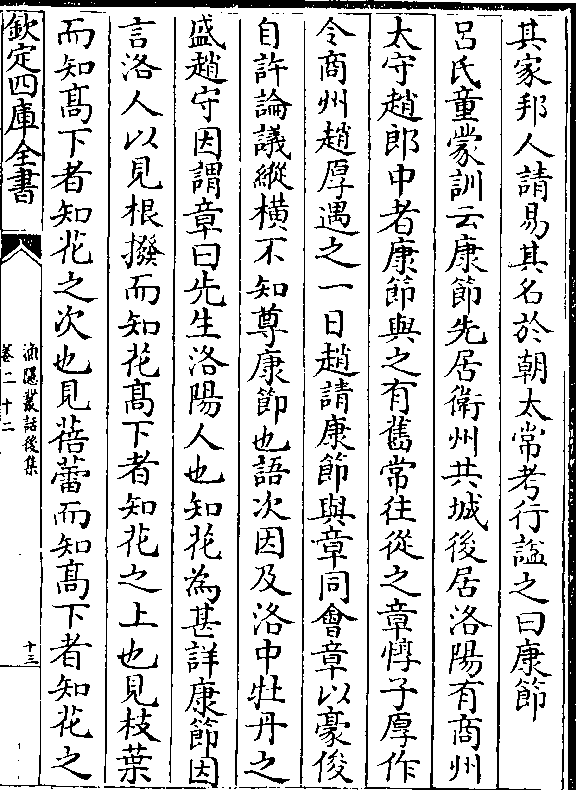 其家邦人請易其名於朝太常考行諡之曰康節
呂氏童蒙訓云康節先居衛州共城後居洛陽有商州
太守趙郎中者康節與之有舊常往從之章惇子厚作
令商州趙厚遇之一日趙請康節與章同會章以豪俊
自許論議縱横不知尊康節也語次因及洛中牡丹之
盛趙守因謂章曰先生洛陽人也知花為甚詳康節因
言洛人以見根撥而知花髙下者知花之上也見枝葉
而知髙下者知花之次也見蓓蕾而知髙下者知花之
欽定四庫全書
漁隱叢話後集
卷二十二
十三